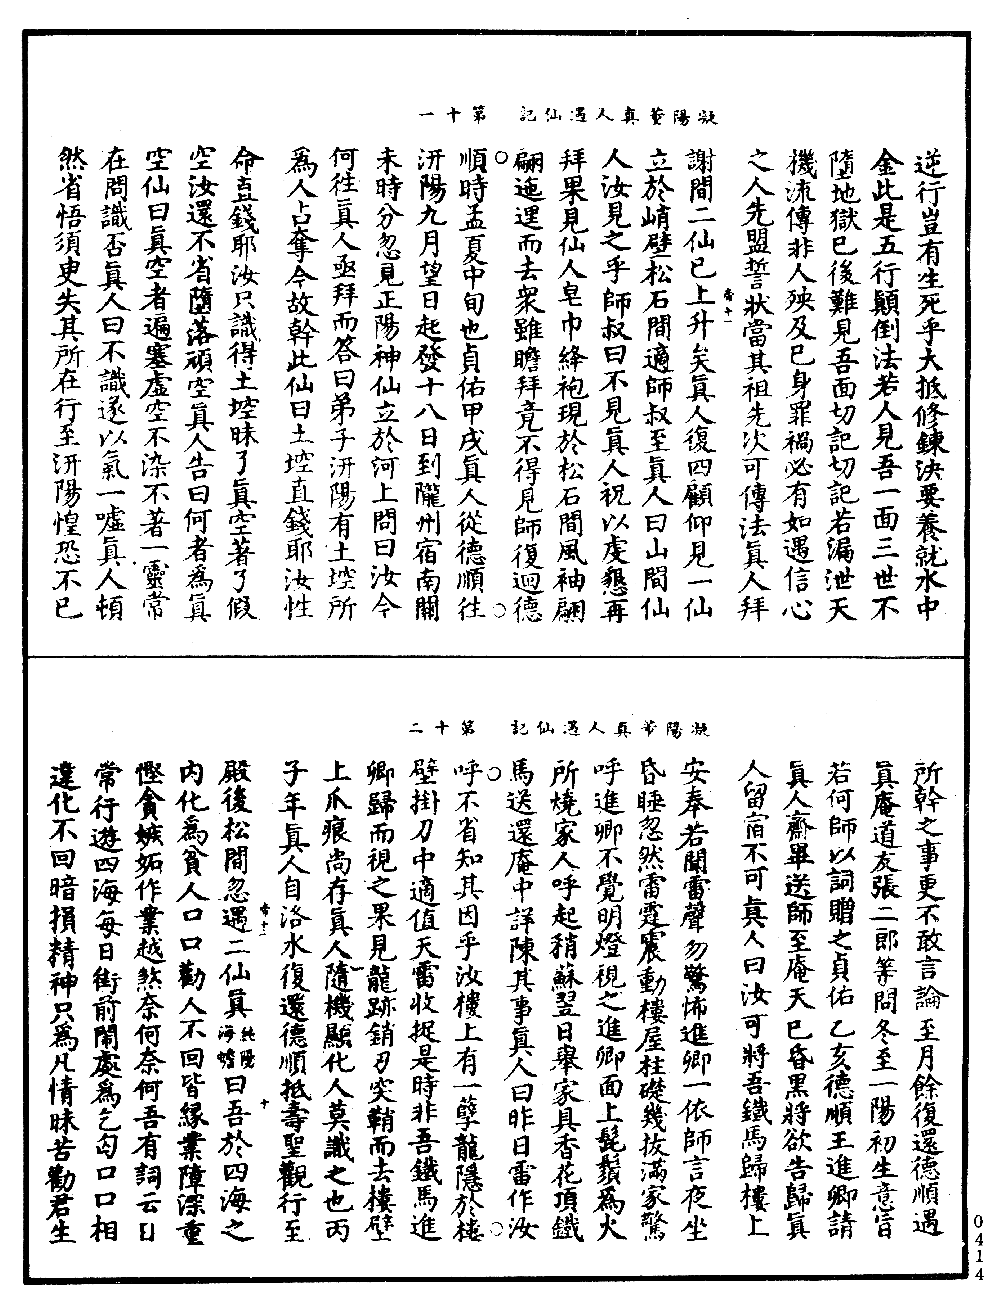 凝陽董真人遇仙記　第十一
逆行豈有生死乎大抵修鍊決要養就水中
金此是五行顛倒法若人見吾一面三世不
墮地獄巳後難見吾面切記切記若漏泄天
機流傳非人殃及巳身罪禍必有如遇信心
之人先盟誓狀當其祖先次可傳法真人拜
帝十一
謝間二仙巳上升矣真人復四顧仰見一仙
立於峭壁松石間適師叔至真人曰山間仙
人汝見之乎師叔曰不見真人祝以虔懇再
拜果見仙人皂巾絳袍現於松石間風袖翩
翩迤邐而去衆雖瞻拜竟不得見師復迴德
順時孟夏中旬也貞佑甲戌真人從德順往
汧陽九月望日起發十八日到隴州宿南關
未時分忽見正陽神仙立於河上問曰汝今
何往真人亟拜而答曰弟子汧陽有土埪所
為人占奪今故幹此仙曰土埪直錢耶汝性
命直錢耶汝只識得土埪昧了真空著了假
空汝還不省墮落頑空真人告曰何者為真
空仙曰真空者遍塞虛空不染不著一靈常
在問識否真人曰不識遂以氣一噓真人頓
然省悟須臾失其所在行至汧陽惶恐不巳
凝陽董真人遇仙記　第十二
所幹之事更不敢言論至月餘復還德順遇
真庵道友張二郎等問冬至一陽初生意旨
若何師以詞贈之貞佑乙亥德順王進卿請
真人齋畢送師至庵天巳昏黑將欲告歸真
人留宿不可真人曰汝可將吾鐵馬歸樓上
安奉若聞雷聲勿驚怖進卿一依師言夜坐
昏睡忽然雷霆震動樓屋柱礎幾拔滿家驚
呼進卿不覺明燈視之進卿面上髭鬚為火
所燒家人呼起稍蘇翌日舉家具香花頂鐵
馬送還庵中詳陳其事真人曰昨日雷作汝
呼不省知其因乎汝樓上有一孽龍隱於樓
壁掛刀中適值天雷收捉是時非吾鐵馬進
卿歸而視之果見龍跡銷刃突鞘而去樓壁
上爪痕尚存真人隨機顯化人莫識之也丙
子年真人自洛水復還德順抵壽聖觀行至
帝十二
殿後松間忽遇二仙真純陽海蟾曰吾於四海之
內化為貧人口口勸人不回皆緣業障深重
慳貪嫉妬作業越煞奈何奈何吾有詞云日
常行遊四海每日街前鬧處為乞匃口口相
違化不回暗損精神只為凡情昧苦勸君生
0414